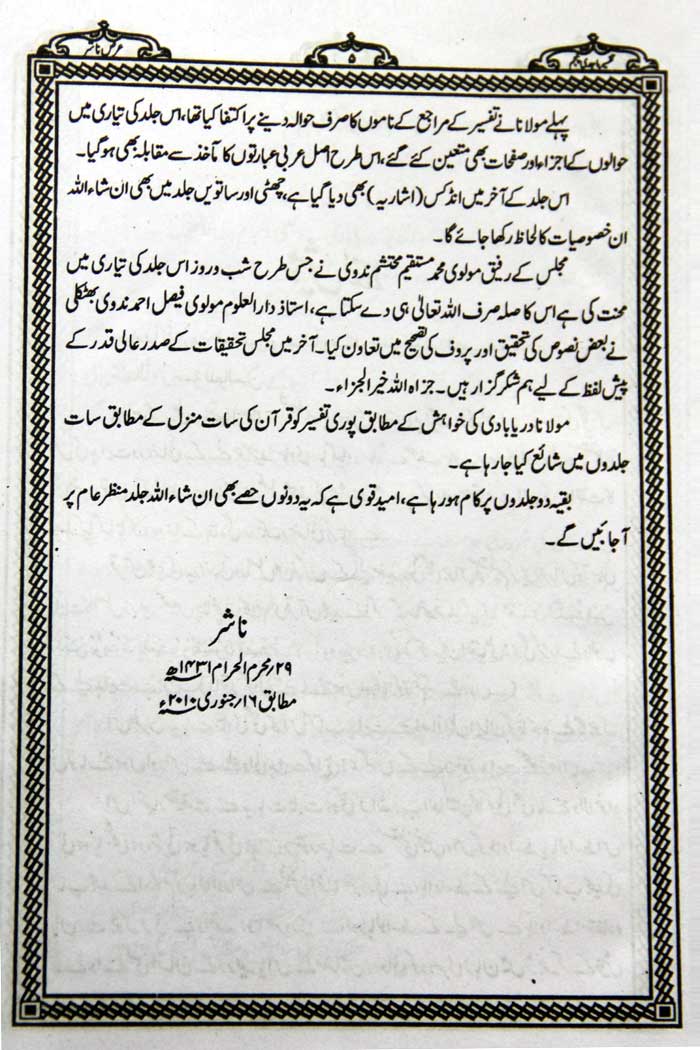 تفسیر ماجدی پنجم
۵
عرض ناشر
پہلے مولانا نے تفسیر کے مراجع کے ناموں کا صرف حوالہ دینے پر اکتفا کیا تھا، اس جلد کی تیاری میں
حوالوں کے اجزاء اور صفحات بھی متعین کئے گئے، اس طرح اصل عربی عبارتوں کا مآخذ سے مقابلہ بھی ہو گیا۔
اس جلد کے آخر میں انڈکس (اشاریہ) بھی دیا گیا ہے، چھٹی اور ساتویں جلد میں بھی ان شاء اللہ
ان خصوصیات کا لحاظ رکھا جائے گا۔
مجلس کے رفیق مولوی محمد مستقیم محتشم ندوی نے جس طرح شب و روز اس جلد کی تیاری میں
محنت کی ہے اس کا صلہ صرف اللہ تعالیٰ ہی دے سکتا ہے، استاذ دارالعلوم مولوی فیصل احمد ندوی بھٹکلی
نے بعض نصوص کی تحقیق اور پروف کی تصحیح میں تعاون کیا۔ آخر میں مجلس تحقیقات کے صدر عالی قدر کے
پیش لفظ کے لیے ہم شکر گزار ہیں۔ جزاہ اللہ خیر الجزاء۔
مولانا دریابادی کی خواہش کے مطابق پوری تفسیر کو قرآن کی سات منزل کے مطابق سات
جلدوں میں شائع کیا جا رہا ہے۔
بقیہ دو جلدوں پر کام ہو رہا ہے، امید قوی ہے کہ یہ دونوں حصے بھی ان شاء اللہ جلد منظر عام پر
آ جائیں گے۔
ناشر
۲۹؍محرم الحرام ۱۴۳۱ھ
مطابق ۱۶؍جنوری ۲۰۱۰ء